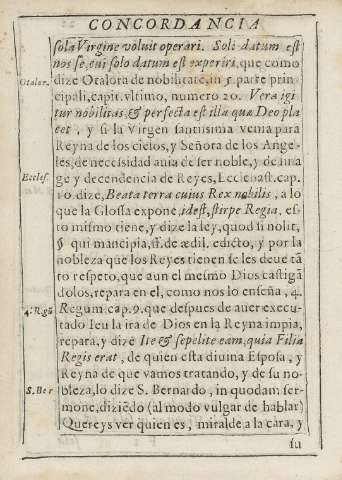 CONCORDANCIA
sola Virgine voluit operari. Soli datum est
nosse, cui solo datum est experiri, que como
Otalor. dize Otalora de nobilitate, in 5. parte prin-
cipali, capit. vltimo, numero 20. Vera igi
tur nobilitas, & perfecta est illa quæ Deo pla
cet, y si la Virgen santissima venia para
Reyna de los cielos, y Señora de los Ange-
les, de necessidad auia de ser noble, y de lina
Eccles. ge y decendencia de Reyes, Ecclesiast. cap.
10. dize, Beata terra cuius Rex nobilis, a lo
que la Glossa expone, idest, stirpe Regia, es-
to mismo tiene, y dize la ley, quod si nolit,
§ qui mancipia, ff. de ædil. edicto, y por la
nobleza que los Reyes tienen se les deue tã
to respeto, que aun el mesmo Dios castigã
dolos, repara en el, como nos lo enseña, 4.
4. Regũ Regum cap. 9. que despues de auer execu-
tado Ieu la ira de Dios en la Reyna impia,
repara, y dize Ite & sepelite eam, quia Filia
Regis erat, de quien esta diuina Esposa, y
Reyna de que vamos tratando, y de su no-
S. Ber bleza, lo dize S. Bernardo, in quodam ser-
mone, diziẽdo (al modo vulgar de hablar)
Quereys ver quien es, miralde a la cara, y
su